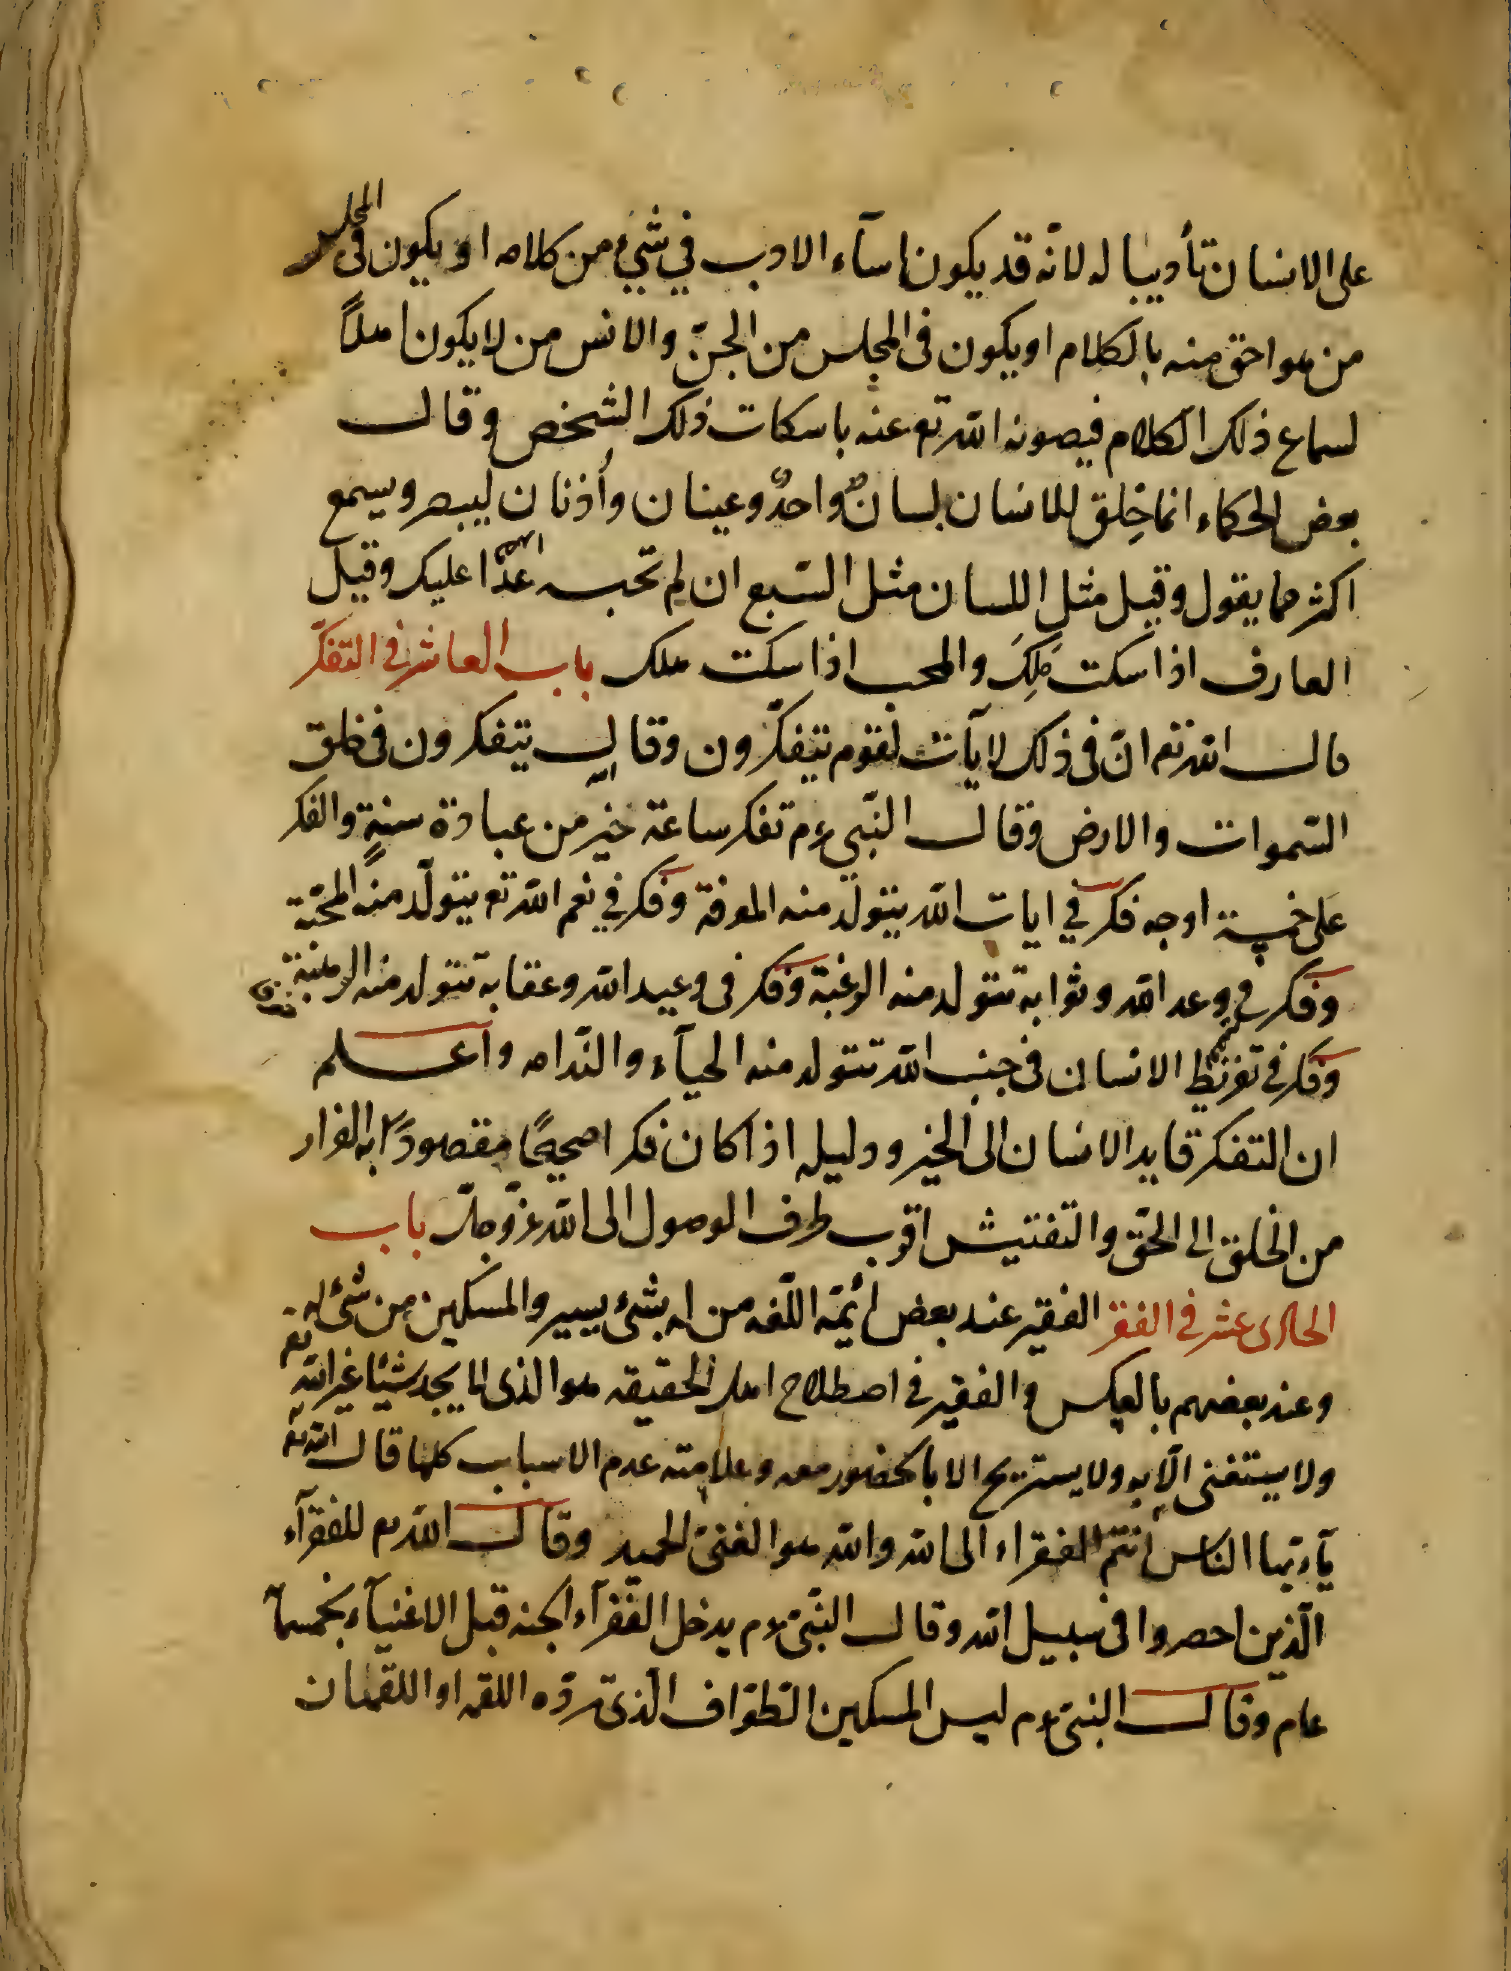 على الانسان تأديبا له لانّه قد يكون اسآء الادب في شيء من كلامه او يكون فى المجلس
من هو احق منه بالكلام او يكون فى المجلس من الجنّ والانس من لا يكون اهلاً
لسماع ذلك الكلام فيصونه الله تع عنه باسكات ذلك الشخص وقال
بعض الحكماء انما خلق للانسان لسانٌ واحدٌ وعينان وأذنان ليبصر ويسمع
اكثر مما يقول وقيل مثل اللسان مثل السّبع ان لم تحبسه عدّا عليك وقيل
العارف اذا سكت مَلِكَ والمحب اذا سكت هلك باب العاشر في التفكّر
قال الله تع انّ فى ذلك لآيآت لقوم يتفكّرون وقال يتفكرون فى خلق
السّموات والارض وقال النّبي ءم تفكر ساعة خير من عبادة سنةٍ والفكر
على خمسة اوجه فكر في ايات الله يتولّد منه المعرفة وفكر في نعم الله تع يتولّد منه المحبّة
وفكر في وعد الله وثوابه تتولد منه الرغبة وفكر فى وعيد الله وعقابه تتولد منه الرهبة
وفكر في تفريط الانسان فى جنب الله تتولد منه الحيآء والنّدامه واعلم
ان التفكر قايد الانسان الى الخير ودليله اذا كان فكرا صحيحًا مقصودًا به الفرار
من الخلق الى الحقّ والتفتيش اقرب طرف الوصول الى الله عزّ وجلّ باب
الحادى عشر في الفقر الفقير عند بعض ائمّة اللّغه من له شئ يسير والمسكين من شئ له
وعند بعضهم بالعكس والفقير في اصطلاح اهل الحقيقه هو الذى لا يجد شيئا غير الله تع
ولا يستغنى الّا به ولا يستريح الا بالحضور معه وعلامته عدم الاسباب كلها قال الله تع
يآ ايّها الناس انتم الفقراء الى الله والله هو الغنىّ الحميد وقال الله تع للفقرآء
الّذين احصروا فى سبيل الله وقال النّبىّ ءم يدخل الفقرآء الجنه قبل الاغنيآء بخمسمآ
عام وقال النبىّ ءم ليس المسكين الطوّاف الّذى تردّه اللقمه او اللقمتان